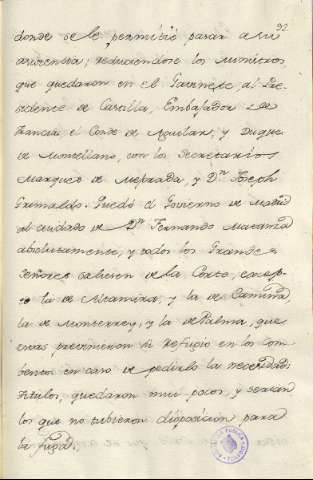 92
donde se le permitió pasar a su
asistencia; reduciendose los Ministros,
que quedaron en el Gavinete al Pre-
sidente de Castilla, Embajador de
Francia el Conde de Aguilar; y Duque
de Montellano, con los Secretarios
Marques de Mejorada, y Dn. Joseph
Grimaldo. Quedó el Govierno de Madrid
al cuidado de Dn. Fernando Matanza
absolutamente, y todos los Grandes
Señores salieron de la Corte, excep-
to la de Altamira, y la de Camiña,
la de Monterrey, y la de Palma, que
estas previnieron su Refugio en los Com-
bentos en caso de pedirlo la necesidad.
Titulos, quedaron mui pocos, y serian
los que no tubieron disposicion para
la fuga.